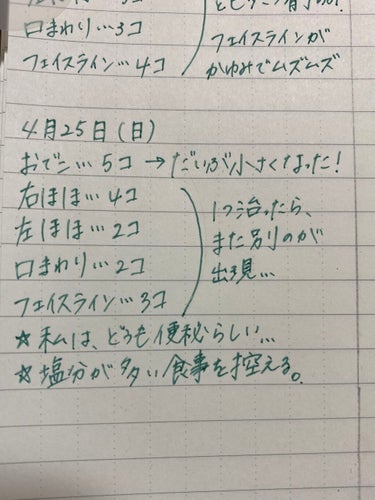 ともすごい
口まわり…3コ
フェイスラインが
フェイスライン…4コ
かゆみでムズムズ
4月25日(日)
おでこ…5コ → だいぶ小さくなった!
右ほほ…4コ
1つ治ったら、
左ほほ…2コ
また別のが
口まわり…2コ
出現…
フェイスライン…3コ
☆私は、どうも便秘らしい…
☆塩分が多い食事を控える。